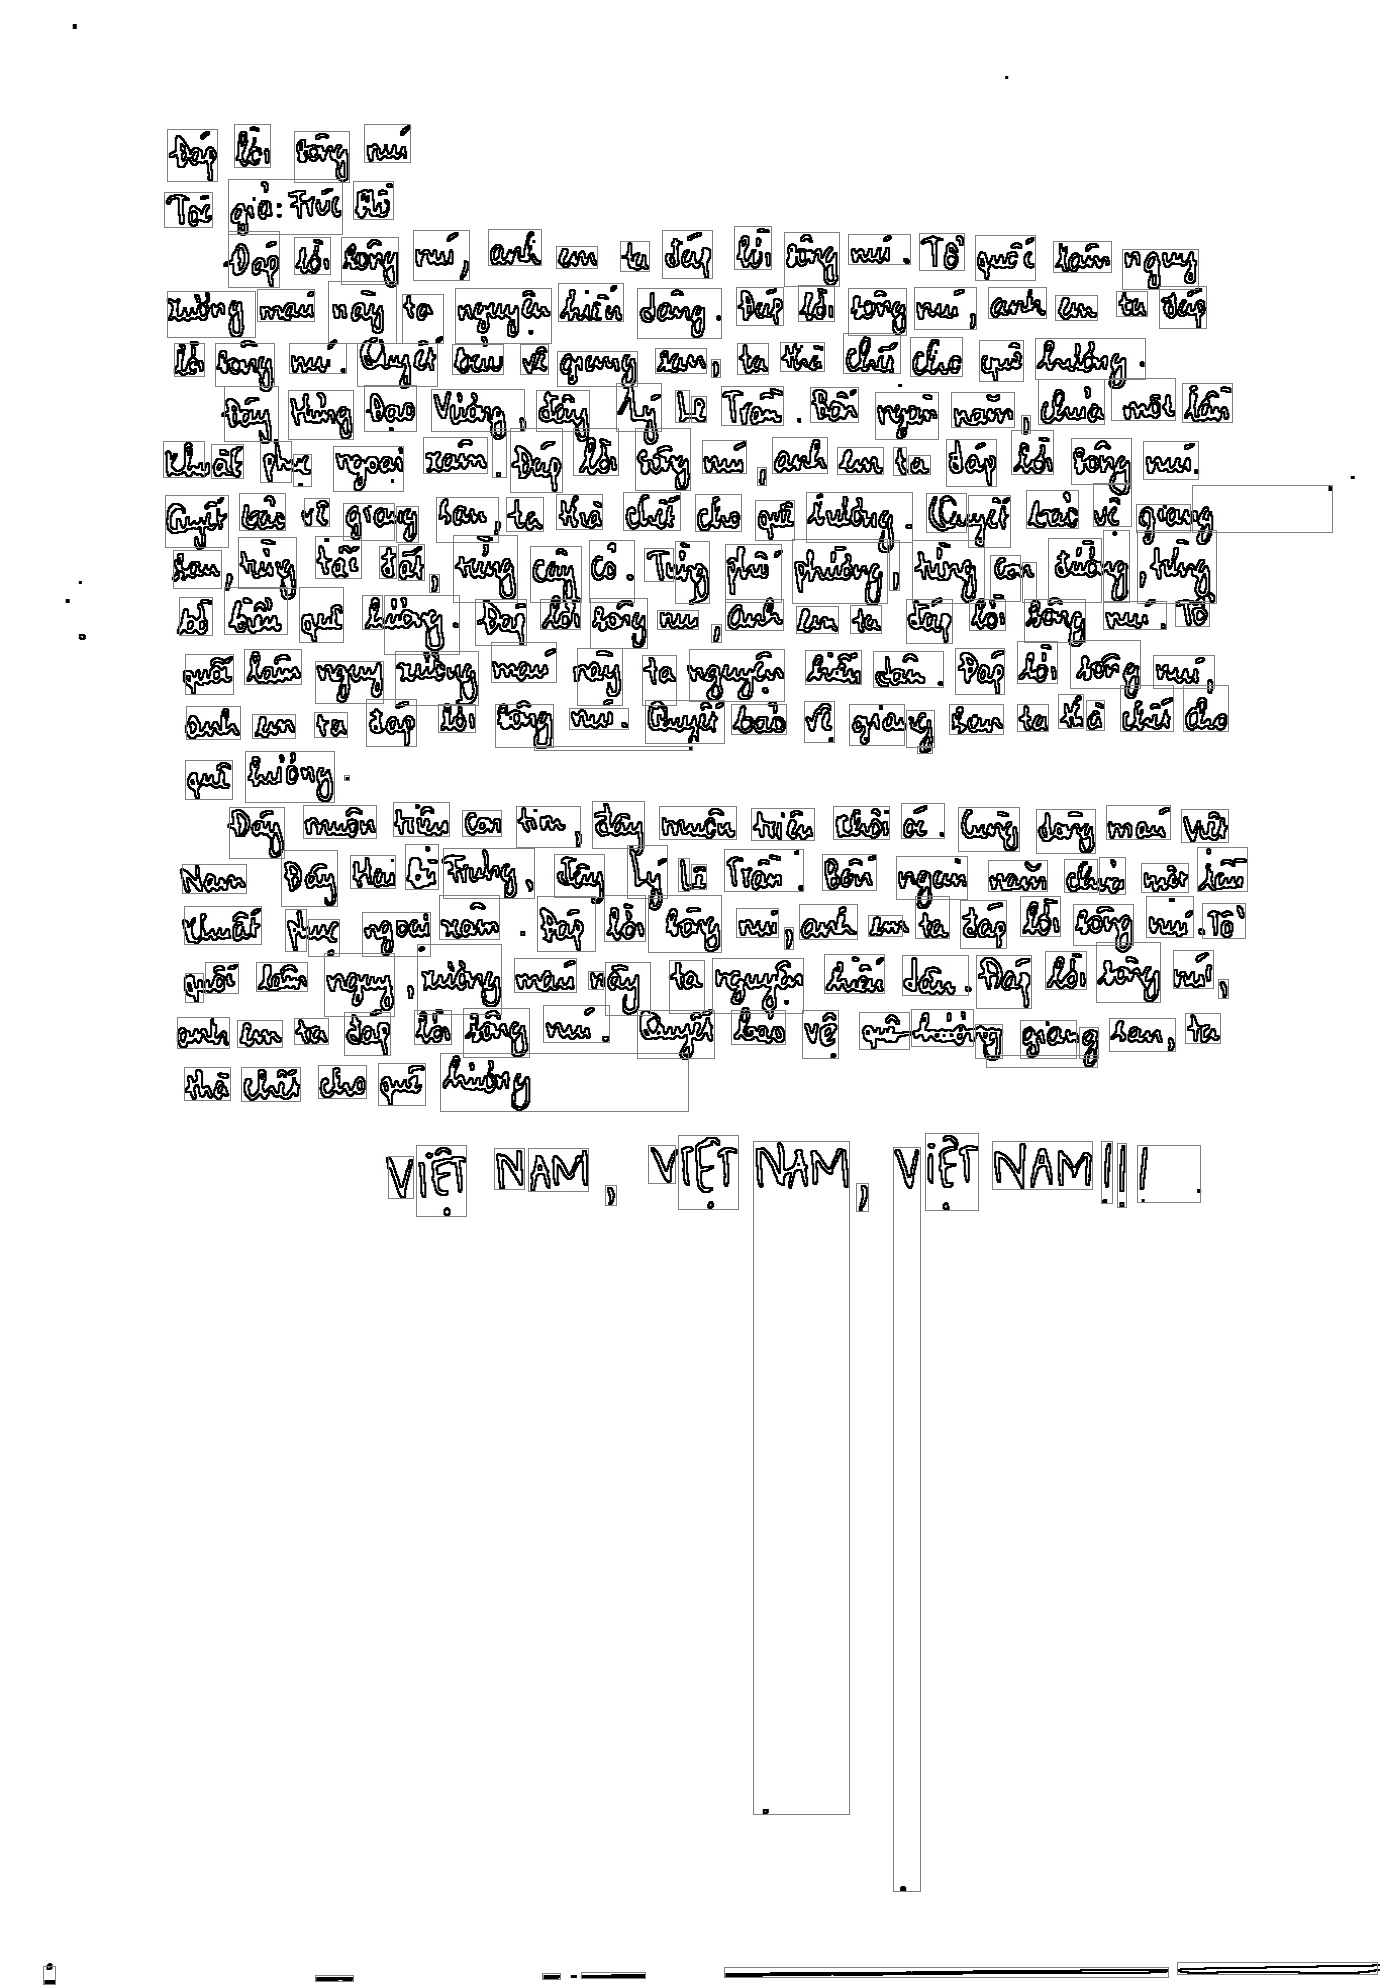 Đáp lời sông núi
Tác giả: Trúc Hồ
Đáp lời sông núi, anh em ta đáp lời sông núi. Tổ quốc lâm nguy
xương máu này ta nguyện hiến dâng. Đáp lời sông núi, anh em ta đáp
lời sông núi. Quyết bảo vệ giang san, ta thà chết cho quê hương.
Đây Hưng Đạo Vương, đây Lý Lê Trần. Bốn ngàn năm, chưa một lần
khuất phục ngoại xâm. Đáp lời sông núi, anh em ta đáp lời sông núi.
Quyết bảo vệ giang san, ta thà chết cho quê hương. Quyết bảo vệ giang
san, từng tấc đất, từng cây cỏ. Từng phố phường, từng con đường, từng
bờ biển quê hương. Đáp lời sông núi, anh em ta đáp lời sông núi. Tổ
quốc lâm nguy xương máu này ta nguyện hiến dân. Đáp lời sông núi,
anh em ta đáp lời sông núi. Quyết bảo vệ giang san ta thà chết cho
quê hương.
Đây muôn triệu con tim, đây muôn triệu khối óc. Cùng dòng máu Việt
Nam Đây Hai Bà Trưng, đây Lý Lê Trần. Bốn ngàn năm chưa một lần
khuất phục ngoại xâm. Đáp lời sông núi, anh em ta đáp lời sông núi. Tổ
quốc lâm nguy, xương máu này ta nguyện hiến dân. Đáp lời sông núi,
anh em ta đáp lời sông núi. Quyết bảo vệ giang san, ta
thà chết cho quê hương
VIỆT NAM, VIỆT NAM, VIỆT NAM!!!